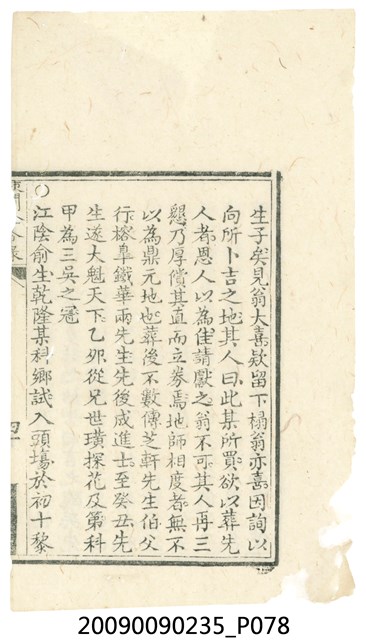 生子矣見翁大喜欵留下榻翁亦喜因詢以
向所卜吉之地其人曰此某所買欲以葬先
人者恩人以為佳請獻之翁不可其人再三
懇乃厚償其直而立券焉地師相度者無不
以為鼎元地也葬後不數傳芝軒先生伯父
行榕臯鐵華兩先生先後成進士至癸丑先
生遂大魁天下乙夘從兄世璜探花及第科
甲為三吳之冠
○江陰俞生乾隆某科鄉試入頭塲於初十黎
四
20090090235_P078